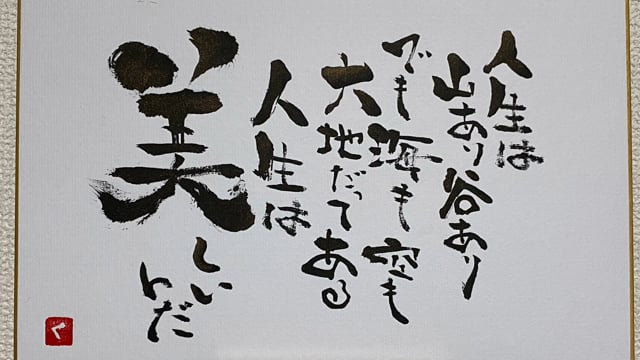 人生は
山あり谷あり
でも海も空も
大地だってある
人生は
美
しい
んだ
く